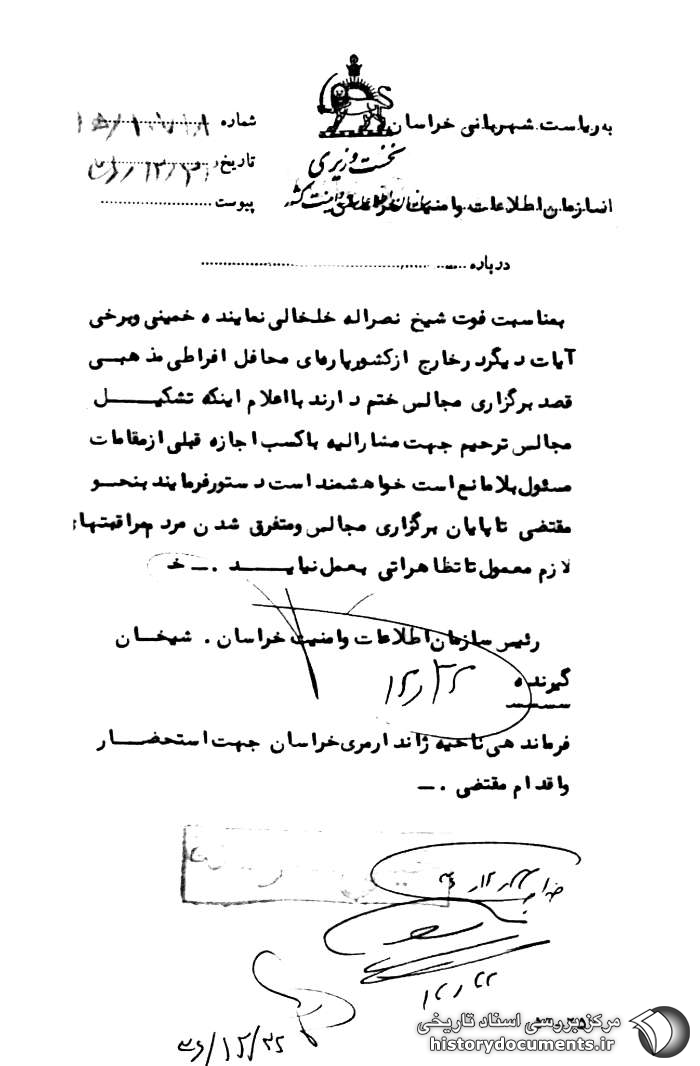 به ریاست شهربانی خراسان
شماره
نخست وزیری
تاریخ
از سازمان اطلاعات و امنیت
سازمان اطلاعات و امنیت کشور
پیوست
درباره
بمناسبت فوت شیخ نصراله خلخالی نماینده خمینی و برخی
آیات دیگر در خارج از کشور پاره‌ای محافل افراطی مذهبی
قصد برگزاری مجالس ختم دارند با اعلام اینکه تشکیل
مجالس ترحیم جهت مشارالیه با کسب اجازه قبلی از مقامات
مسئول بلامانع است خواهشمند است دستور فرمایند بنحو
مقتضی تا پایان برگزاری مجالس و متفرق شدن مردم مراقبتهای
لازم معمول تا تظاهراتی بعمل نیاید .ـ خ
رئیس سازمان اطلاعات و امنیت خراسان . شیخان
گیرنده
فرماندهی ناحیه ژاندارمری خراسان جهت استحضار
و اقدام مقتضی .ـ
مرکز بررسی اسناد تاریخی
historydocuments.ir